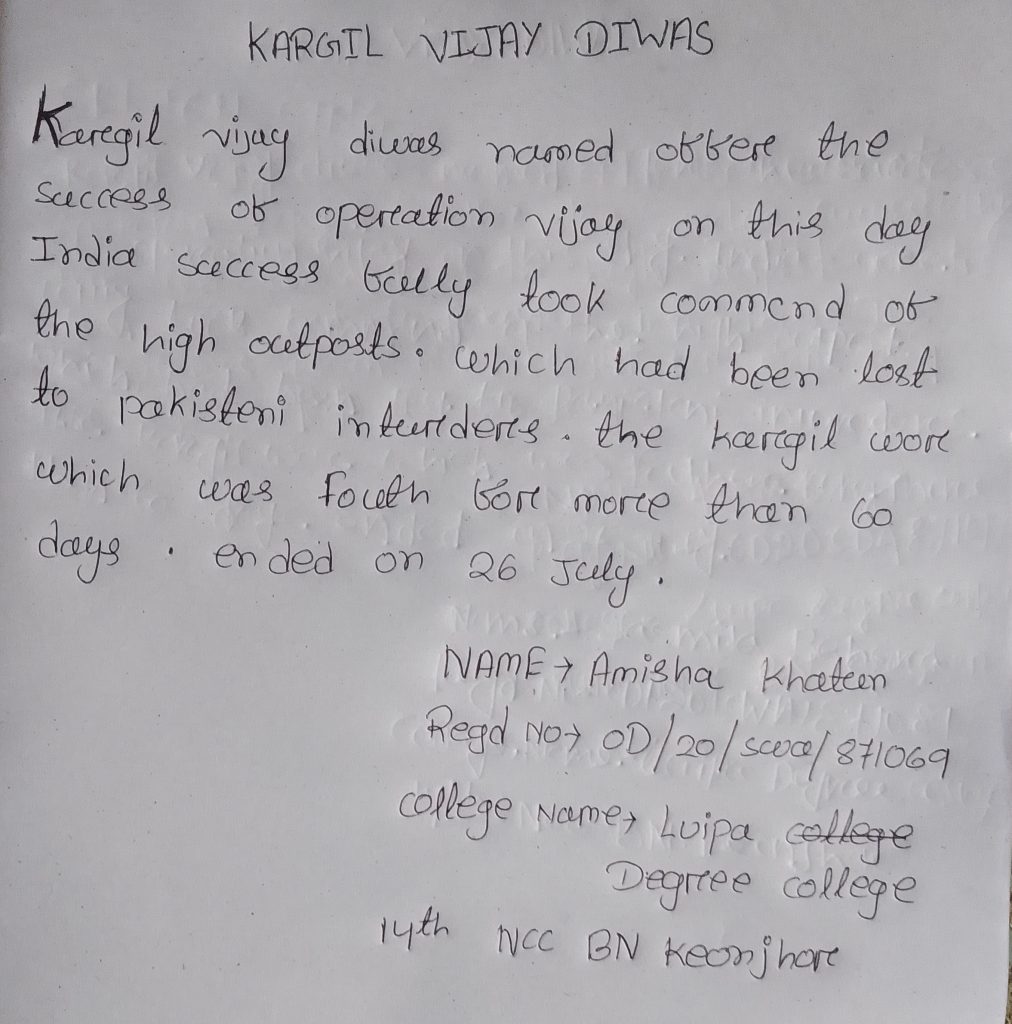 KARGIL VIJAY DIWAS
Karegil vijay diwas named after the
success of opereation vijay on this day
India success fully took commend of
the high outposts. which had been lost
to pakisteni intureders. the karegil ware
which was fouth fore more than 60
days. ended on 26 July.
NAME → Amisha Khatun
Regd No → OD/20/swa/871069
college Name → Luipa college
Degree college
14th NCC BN Keonjhar